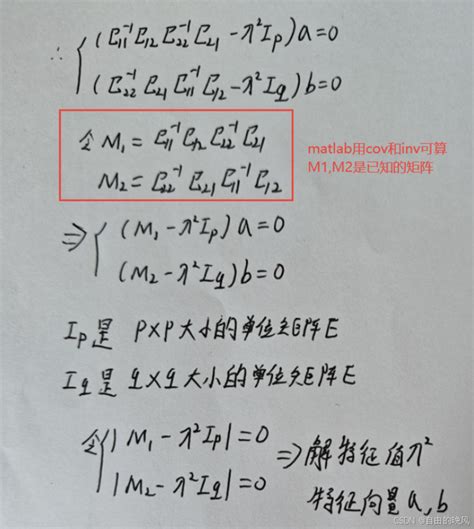 ∴ { (Σ₁₁⁻¹Σ₁₂Σ₂₂⁻¹Σ₂₁ - λ²Iₚ)a=0
(Σ₂₂⁻¹Σ₂₁Σ₁₁⁻¹Σ₁₂ - λ²I_q)b=0
令 M₁ = Σ₁₁⁻¹Σ₁₂Σ₂₂⁻¹Σ₂₁
M₂ = Σ₂₂⁻¹Σ₂₁Σ₁₁⁻¹Σ₁₂
matlab用cov和inv可算
M1,M2是已知的矩阵
⇒ { (M₁ - λ²Iₚ)a=0
(M₂ - λ²I_q)b=0
Iₚ是 p×p 大小的单位矩阵E
I_q是 q×q 大小的单位矩阵E
令 { |M₁ - λ²Iₚ|=0
|M₂ - λ²I_q|=0
⇒ 解特征值λ²
特征向量a,b
CSDN @自由的晚风